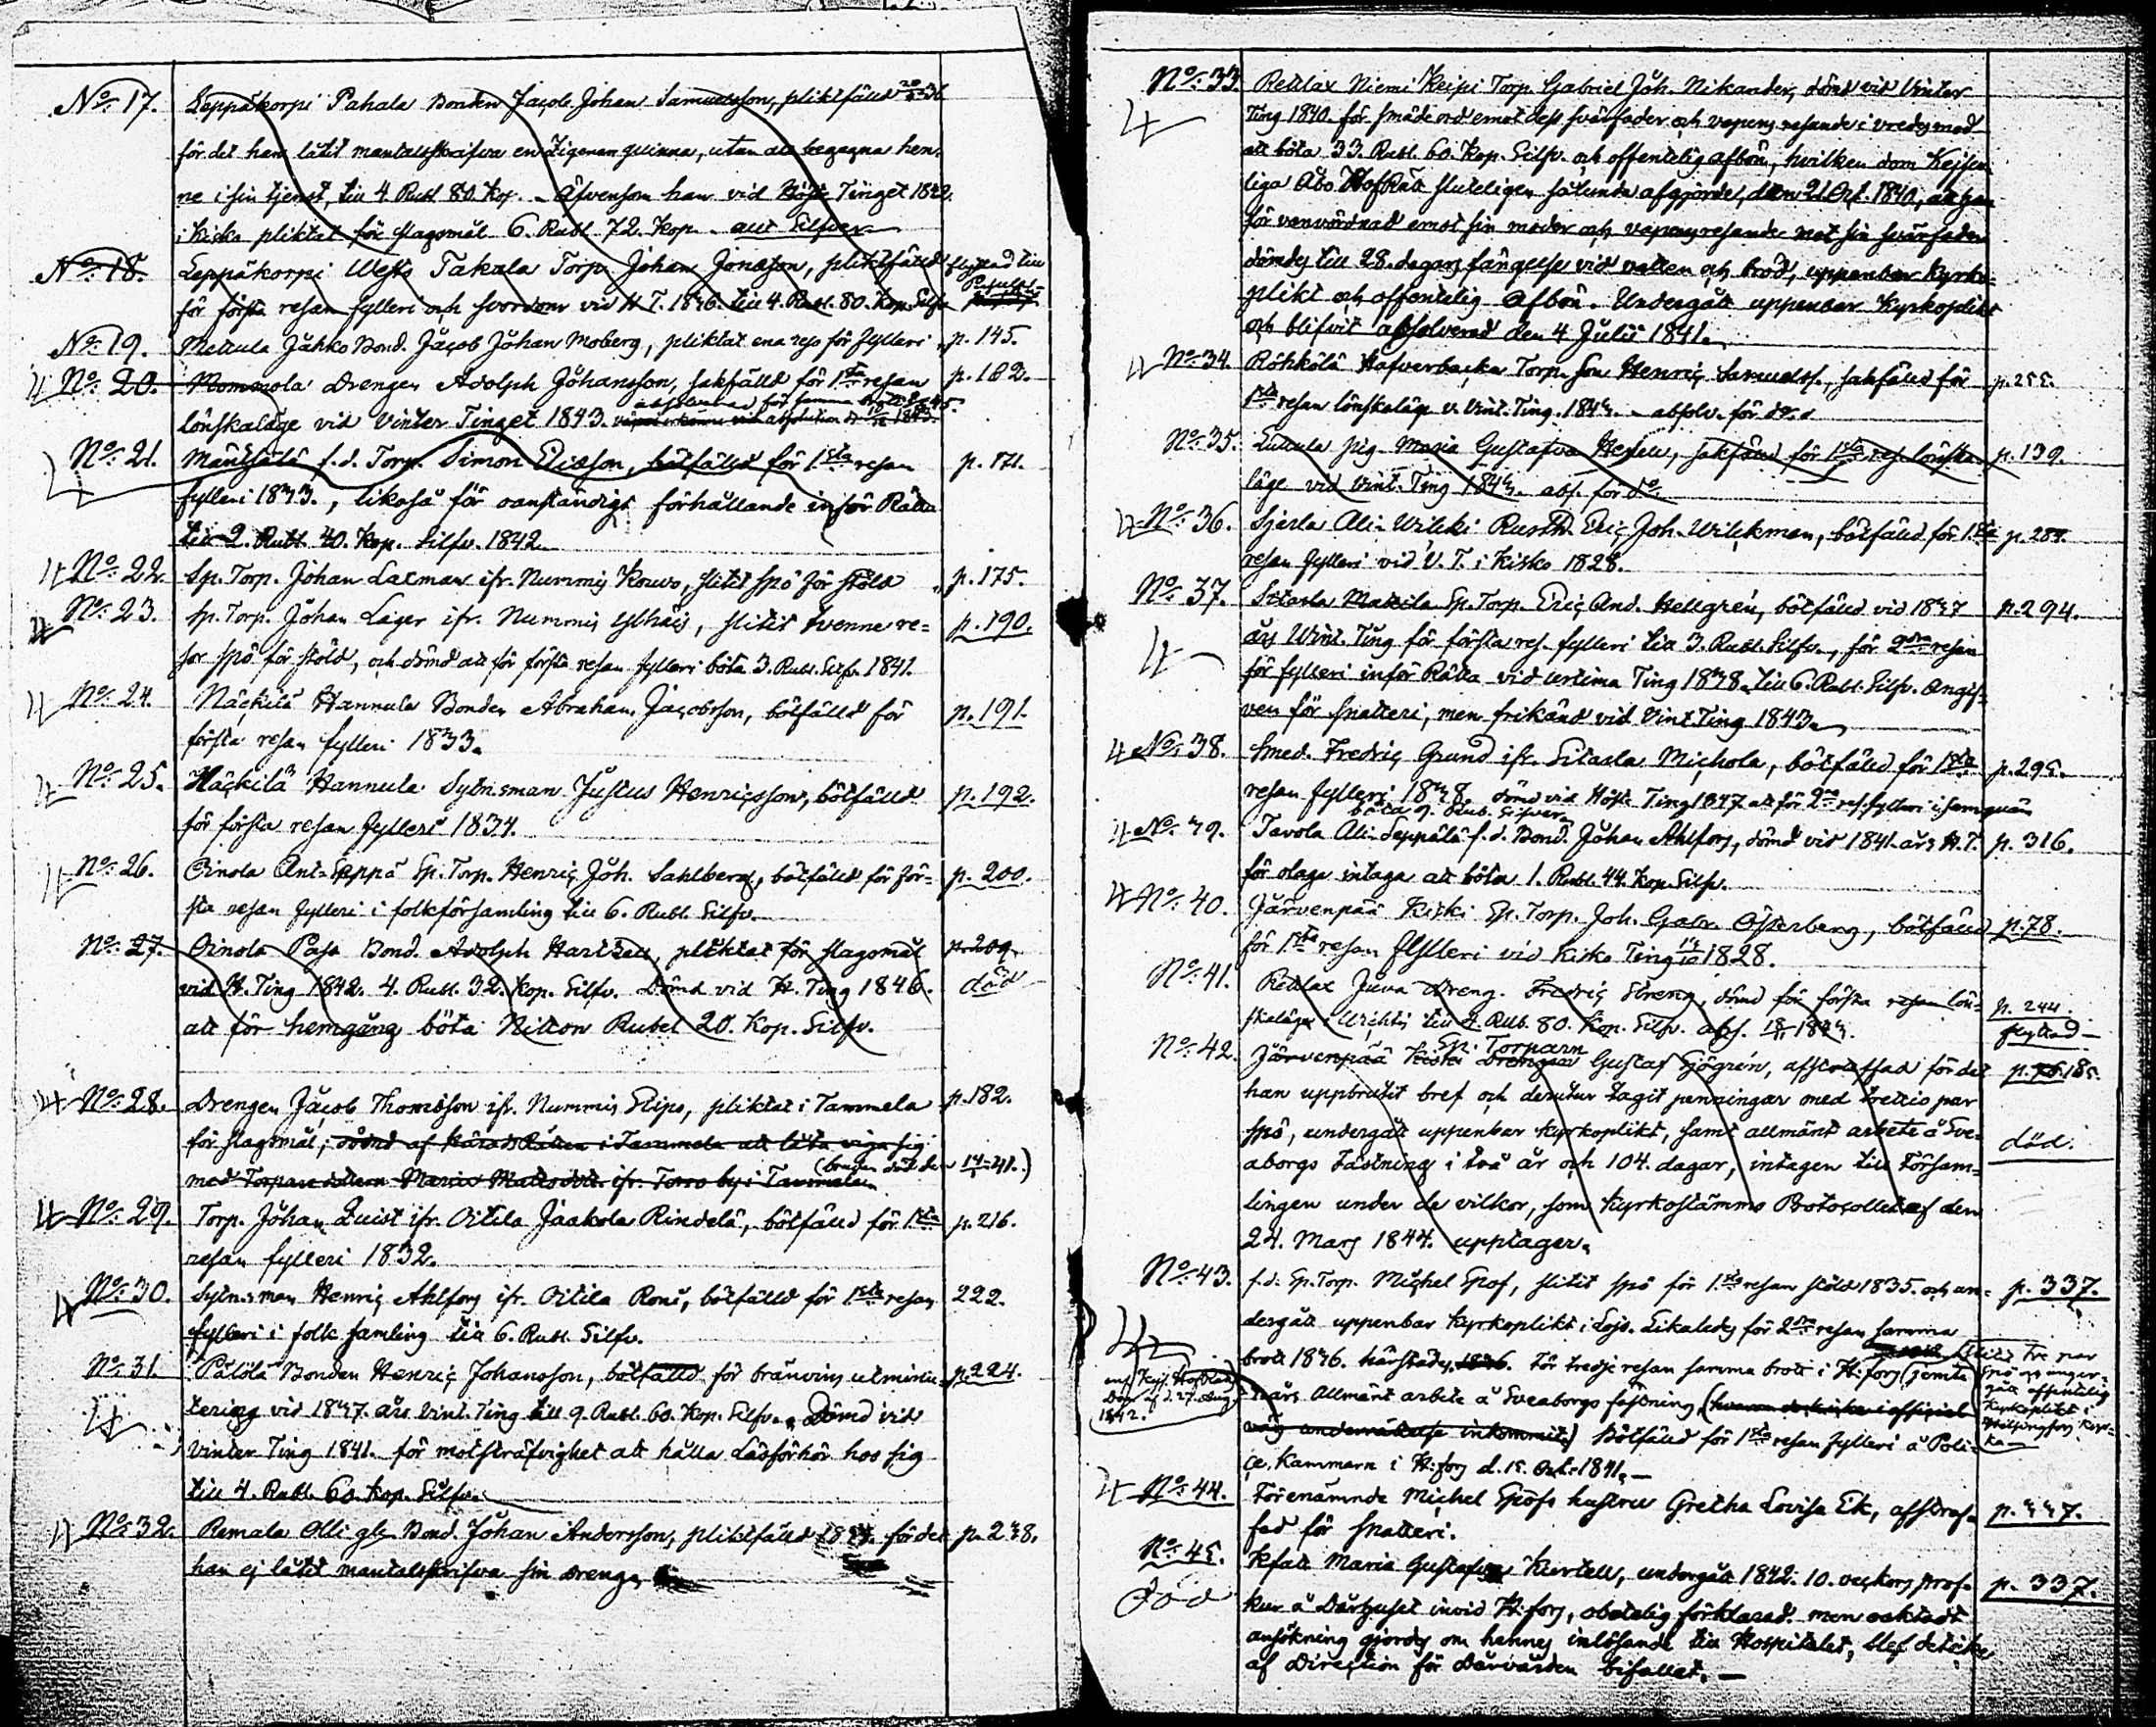 No. 17. Leppäkorpi Pahala Bonden Jacob Johan Samuelsson, pliktfälld
för det han låtit mantalsskrifva en Zigenar qvinna, utan att begagna hen-
ne i sin tjenst, till 4. Rubl 80. Kop. - Äfvensom han vid Höst Tinget 1842.
i Kisko pliktat för slagsmål 6. Rubl. 72. Kop. allt Silfver
No. 18. Leppäkorpi Takala Torp. Johan Jonasson, pliktfälld flyttad till
för första resan fylleri och svordom vid H. T. 1846. till 4. Rubl. 80. Kop. Silfv.
No. 19. Mettula Jahko Bond. Jacob Johan Moberg, pliktat ena reso för fylleri p. 145.
No. 20. Nommola Drengen Adolph Johansson, sakfälld för 1sta resan p. 182.
absolverad för samma brott
lönskaläge vid Vinter Tinget 1843.
No. 21. Mäntsälä f.d. Torp. Simon Ericsson, bötfälld för 1sta resan p. 171.
fylleri 1843., likaså för oanständigt förhållande inför Rätta
till 2. Rubl. 40. Kop. Silfv. 1842.
No. 22. Sp. Torp. Johan Laxman ifr. Nummis Kouvo, slitit spö för stöld p. 175.
No. 23. Sp. Torp. Johan Lager ifr. Nummis Ylhäis, slitit tvenne re- p. 190.
sor spö för stöld, och dömd att för första resan fylleri böta 3. Rubl. Silfv. 1841.
No. 24. Näckilä Hannula Bonden Abraham Jacobsson, bötfälld för p. 191.
första resan fylleri 1833.
No. 25. Näckilä Hannula Sytn.sman Justus Henricsson, bötfälld p. 192.
för första resan fylleri 1834.
No. 26. Oinola Ant-Seppä Sp. Torp. Henric Joh. Sahlberg, bötfälld för för- p. 200.
sta resan fylleri i folkförsamling till 6. Rubl. Silfv.
No. 27. Oinola Pass Bond. Adolph Hartzell, pliktat för slagsmål p. 209.
vid H. Ting 1842. 4. Rubl. 32. Kop. Silfv. Dömd vid H. Ting 1846. död
att för hemgång böta Nitton Rubel 20. Kop. Silfv.
No. 28. Drengen Jacob Thomasson ifr. Nummis Skipo, pliktat i Tammela p. 182.
för slagsmål; dömd af HäradsRätten i Tammela att låta viga sig
med Torpare dottern Maria Matsdotter ifr. Torro by i Tammela
No. 29. Torp. Johan Quist ifr. Oitila Jaakola Rindelä, bötfälld för 1sta p. 216.
resan fylleri 1832.
No. 30. Sytn.sman Henric Ahlfors ifr. Oitila Roni, bötfälld för 1sta resan 222.
fylleri i folk samling till 6. Rubl. Silfv.
No. 31. Pälölä Bonden Henric Johansson, bötfälld för bränvins utminu- p. 224.
tering vid 1837. års Vint. Ting till 9. Rubl. 60. Kop. Silfv. Dömd vid
Vinter Ting 1841. för motsträfvighet att hålla Läsförhör hos sig
till 4. Rubl. 60. Kop. Silfv.
No. 32. Remala Olli gl. Bond. Johan Andersson, pliktfälld för det p. 238.
han ej låtit mantalsskrifva sin dreng.
No. 33. Retlax Niemi Keipi Torp. Gabriel Joh. Nikander, dömd vid Vinter
Ting 1840. för smäde ord emot dess svärfader och vapens resande i vredes mod
att böta 33. Rubl. 60. Kop. Silfv. och offentelig afbön, hvilken dom Kejser-
liga Åbo HofRätt sluteligen sålunda afgjorde, den 21 Oct. 1840, att han
för vanvördnad emot sin moder och vapensresande mot sin svärfader
dömdes till 28. dagars fängelse vid vatten och bröd, uppenbar Kyrko-
plikt och offentelig afbön. Undergått uppenbar Kyrkoplikt
och blifvit absolverad den 4 Julii 1841.
No. 34. Röhkölä Hafverbacka Torp. Son Henric Samuelss., sakfälld för p. 255.
1sta resan lönskaläge v. Vint. Ting. 1843. - absolv. för do.
No. 35. Lullula Pig. Maria Gustafva Hedell, sakfälld för 1sta res. lönska- p. 139.
läge vid Vint. Ting 1843. abs. för do.
No. 36. Sjerla Ali-Wilcki Rusth. Eric Joh. Wilckman, bötfälld för 1sta p. 284.
resan fylleri vid V. T. i Kisko 1828.
No. 37. Sitarla Mattila Sp. Torp. Eric And. Hellgrén, bötfälld vid 1837 p. 294.
års Wint. Ting för första res. fylleri till 3. Rubl. Silfv., för 2dra resan
för fylleri inför Rätta vid urtima Ting 1838. till 6. Rubl. Silfv. Angif-
ven för snatteri, men frikänd vid Vint Ting 1843.
No. 38. Smed. Fredric Grund ifr. Sitarla Michola, bötfälld för 1sta p. 295.
resan fylleri 1838. dömd vid Höst Ting 1847 att för 2dra res. fylleri i
böta 9. Rub. Silfver
No. 39. Tavola Ali-Seppälä f.d. Bond. Johan Ahlfors, dömd vid 1841. års H. T. p. 316.
för olaga intaga att böta 1. Rubl. 44. Kop. Silfv.
No. 40. Järvenpää Kiski Sp. Torp. Joh. Gabr. Österberg, bötfälld p. 78.
för 1sta resan fylleri vid Kisko Ting 1828.
No. 41. Retlax Juva Dreng. Fredric Streng, dömd för första resan lön- p. 244.
skaläge i Wichtis till 4. Rub. 80. Kop. Silfv. abs. flyttad
Sp: Torparn
No. 42. Järvenpää Kiski Drengen Gustaf Sjögrén, afstraffad för det p. 185.
han uppbrutit bref och derutur tagit penningar med trettio par
spö, undergått uppenbar Kyrkoplikt, samt allmänt arbete å Sve- död.
aborgs Fästning i två år och 104. dagar, intagen till Försam-
lingen under de vilkor, som Kyrkostämmo Protocollet af den
24. Mars 1844. upptager.
No. 43. f.d. Sp. Torp. Michel Spof, slitit spö för 1sta resan stöld 1835. och un- p. 337.
dergått uppenbar Kyrkoplikt i Lojo. Likaledes för 2dra resan samma
brott 1836. härstädes. För tredje resan samma brott i H:fors
års Allmänt arbete å Sveaborgs fästning
underrättelse inkommit) Bötfälld för 1sta resan fylleri å Poli-
ce Kammarn i H:fors d. 15. Oct. 1841.
No. 44. Förenämnde Michel Spofs hustru Gretha Lovisa Ek, afstraf- p. 337.
fad för snatteri.
No. 45. Kfatt. Maria Gustafva Kurtell, undergått 1842. 10. veckors prof- p. 337.
Död kur å Dårhuset invid H:fors, obotelig förklarad. men oaktadt
ansökning gjordes om hennes inlösande till Hospitalet, blef det icke
af Direction för Dårvården bifallet.